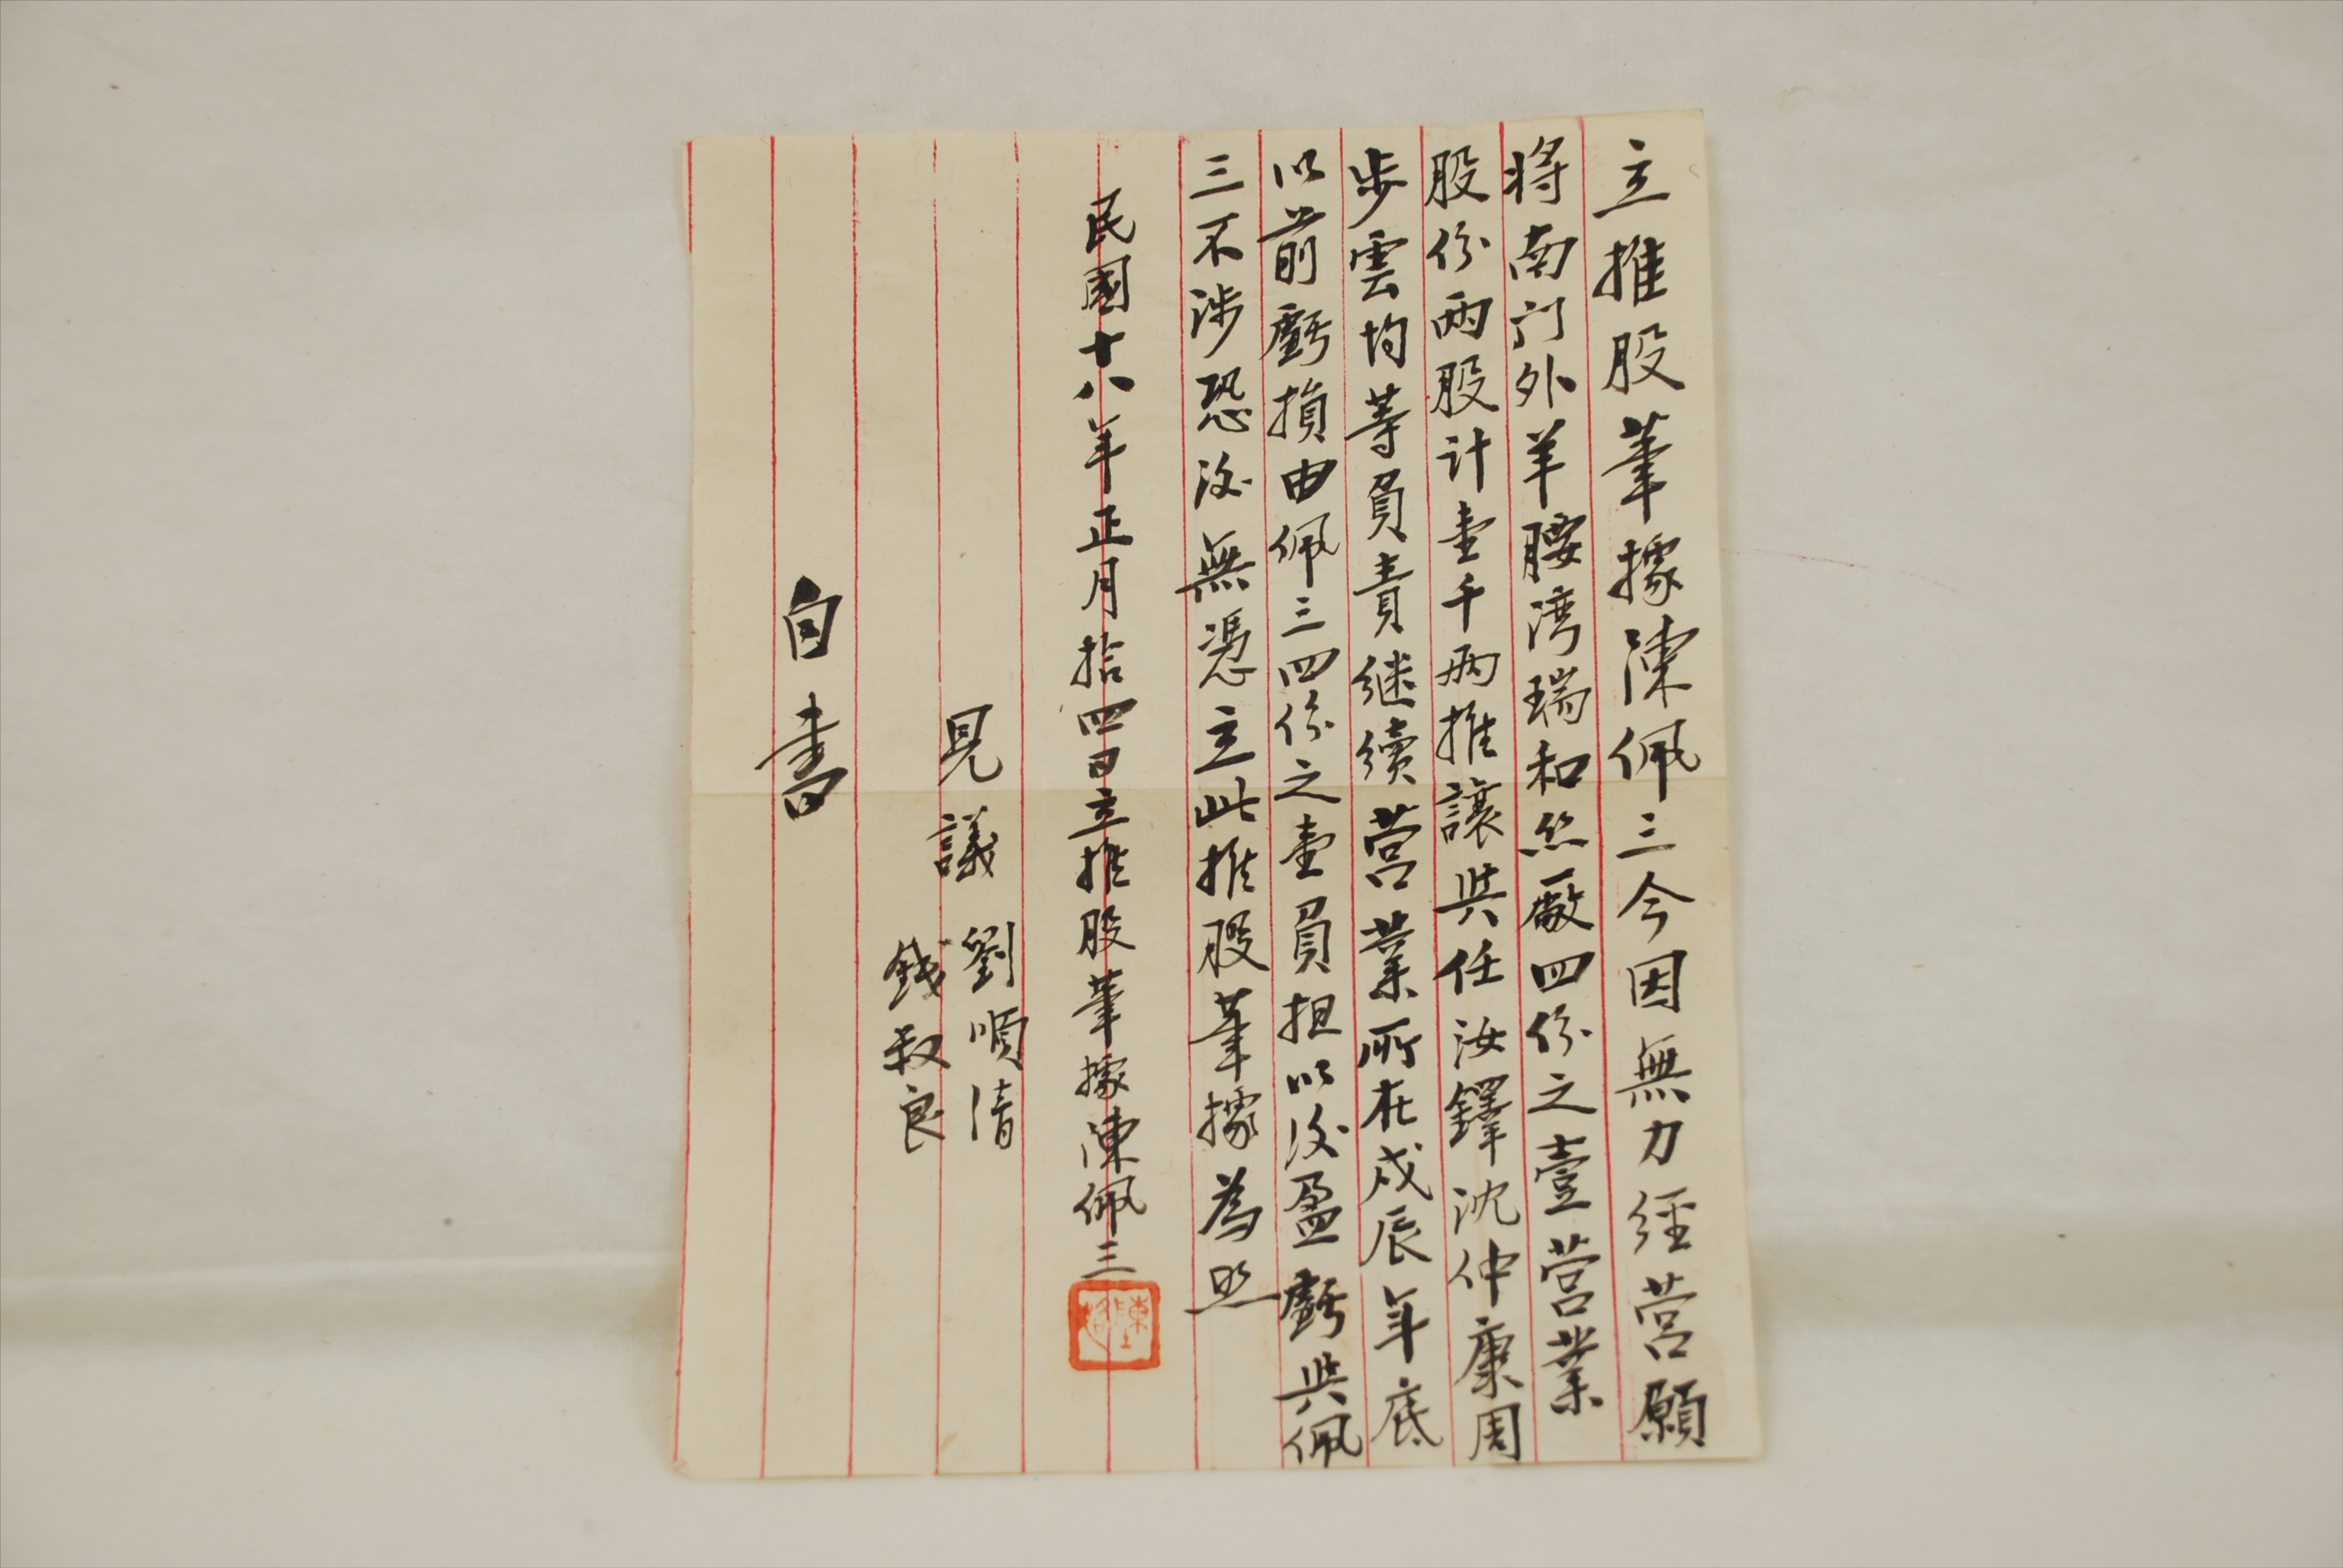 立推股筆據陳佩三今因無力经营願
将南门外羊腰湾瑞和丝厰四份之壹营業
股份兩股计壹千兩推讓與任汝鐸沈仲康周
步雲均等負責继續营業所在戊辰年底
以前虧損由佩三四份之壹負担以後盈虧與佩
三不涉恐後無憑立此推股筆據為照
民國十八年正月拾四日立推股筆據陳佩三
見議 劉順清
錢叔良
自書